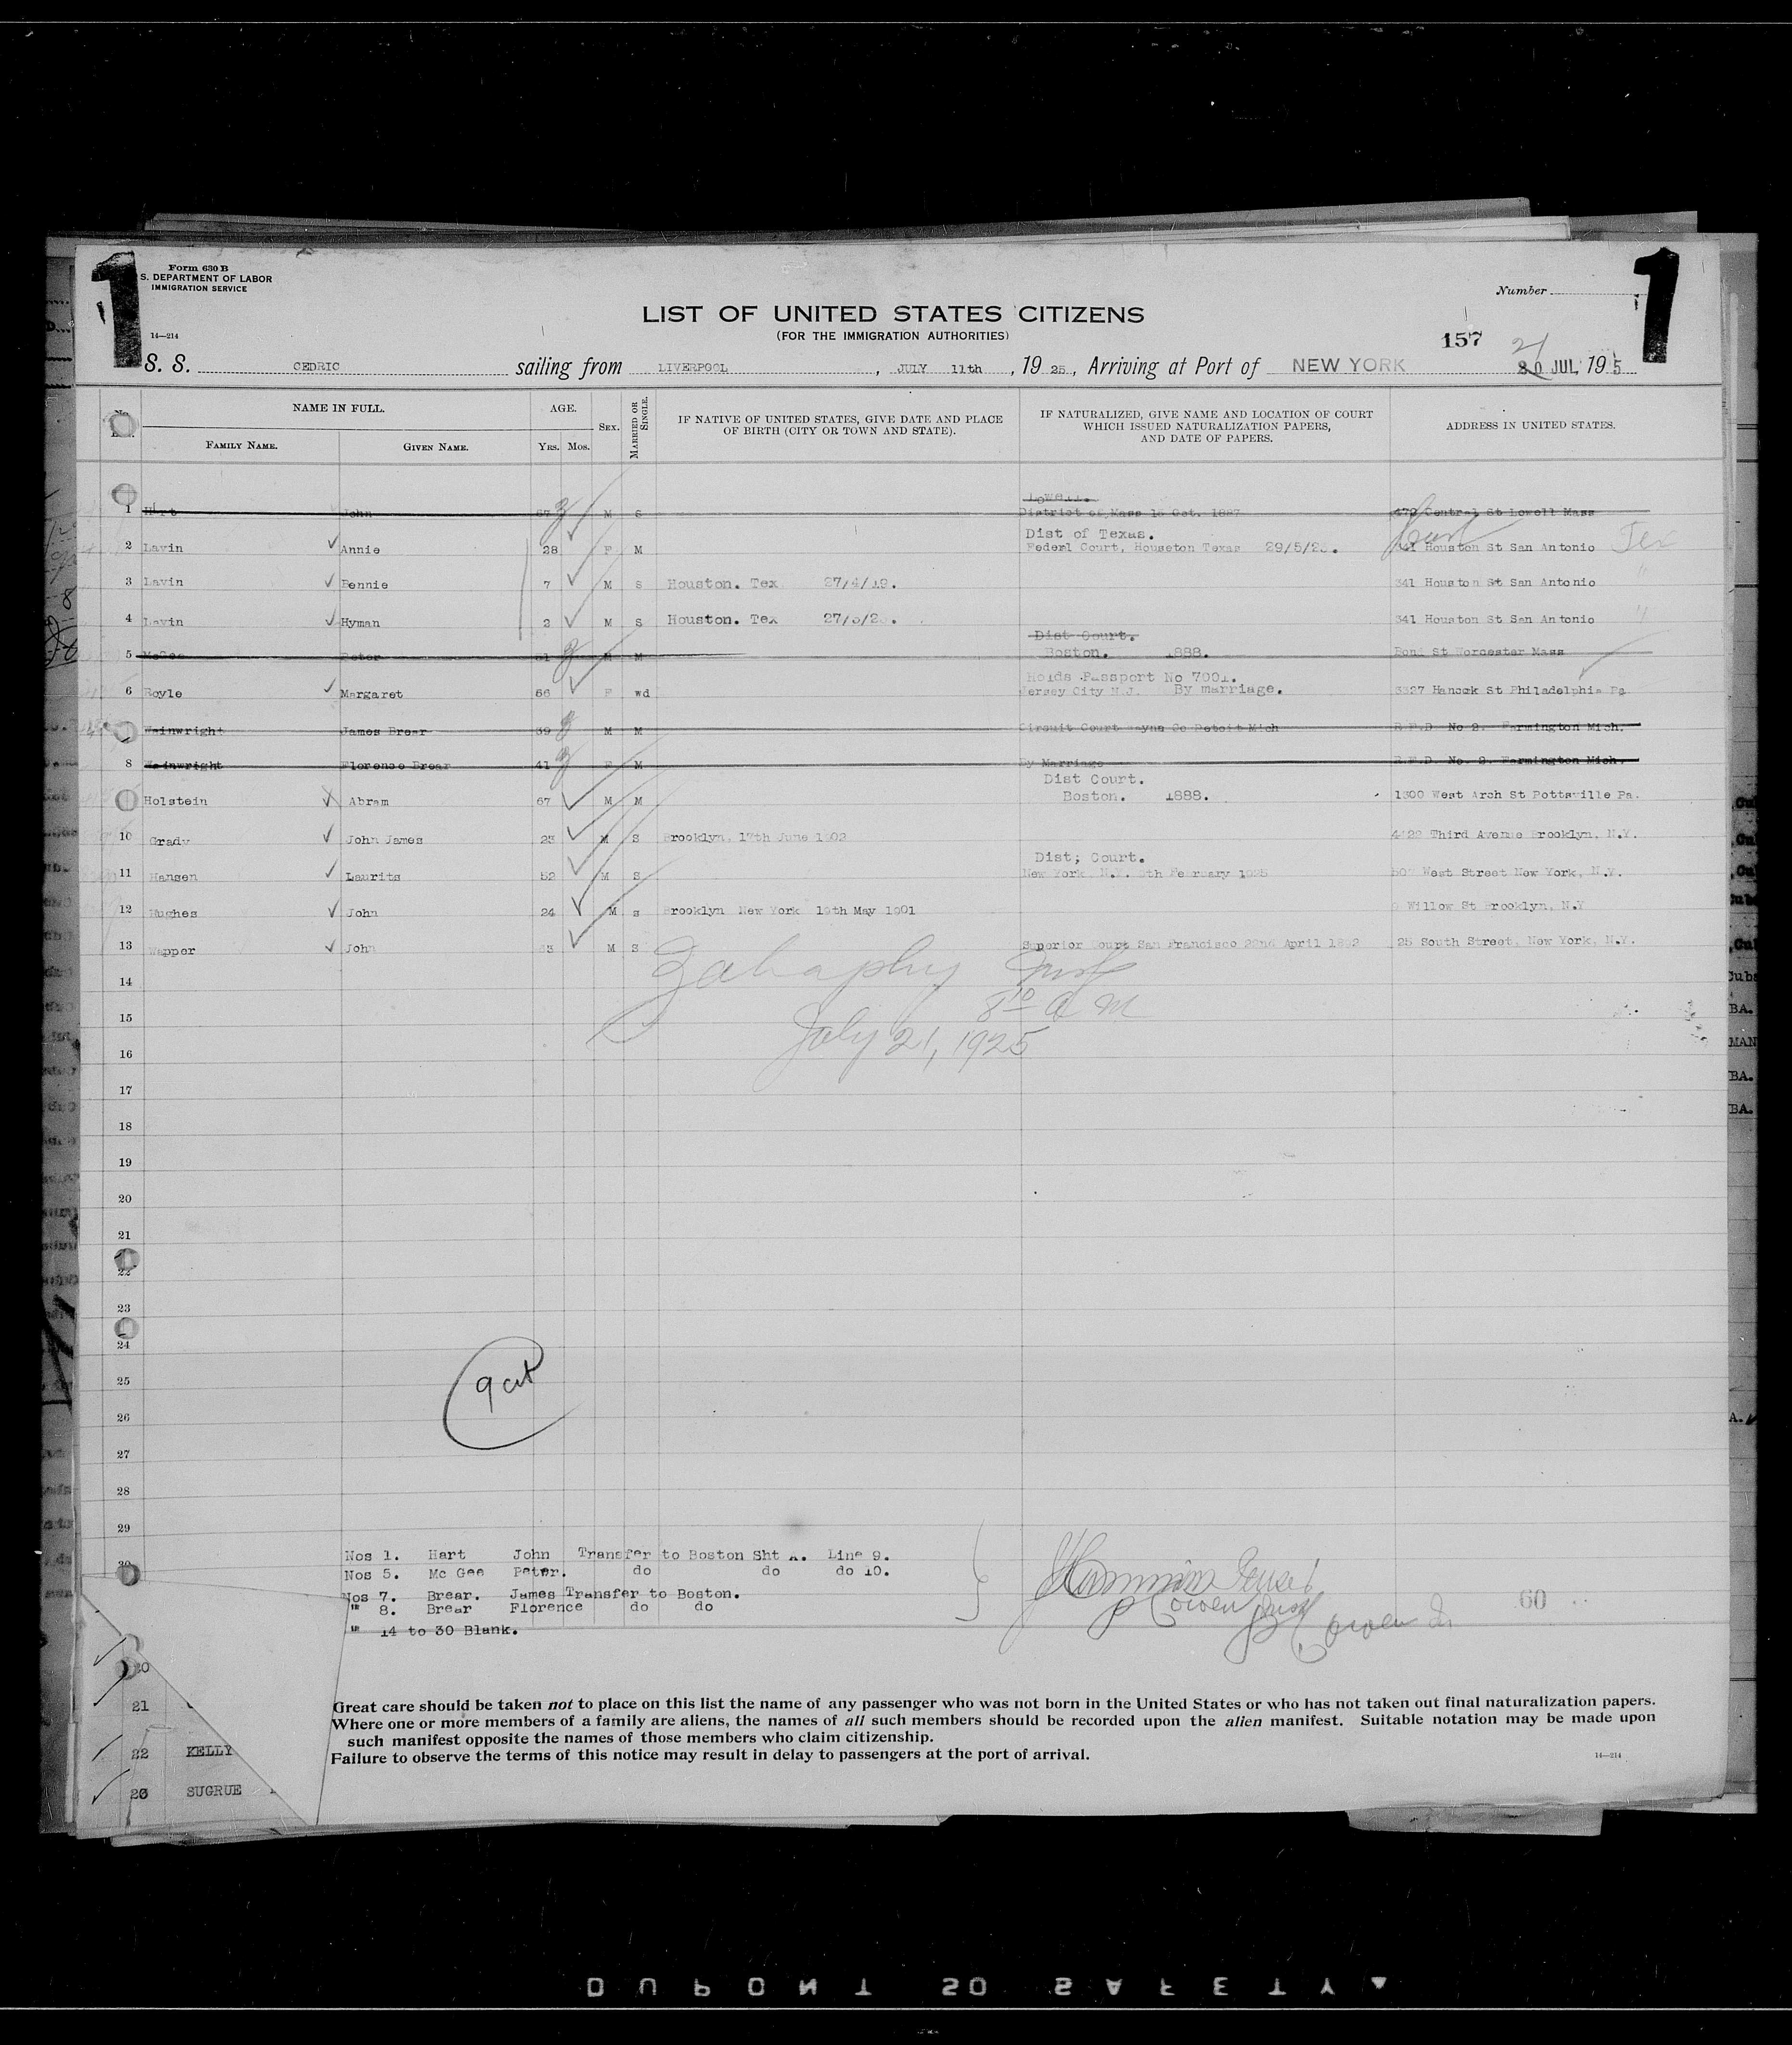 1
Form 630 B
S. DEPARTMENT OF LABOR
IMMIGRATION SERVICE
14—214
LIST OF UNITED STATES CITIZENS
(FOR THE IMMIGRATION AUTHORITIES)
Number
1
157
S. S. CEDRIC sailing from LIVERPOOL, JULY 11th, 1925, Arriving at Port of NEW YORK 21 20 JUL 195
No.
NAME IN FULL.
FAMILY NAME. GIVEN NAME.
AGE.
YRS. MOS.
SEX.
MARRIED OR SINGLE.
IF NATIVE OF UNITED STATES, GIVE DATE AND PLACE
OF BIRTH (CITY OR TOWN AND STATE).
IF NATURALIZED, GIVE NAME AND LOCATION OF COURT
WHICH ISSUED NATURALIZATION PAPERS,
AND DATE OF PAPERS.
ADDRESS IN UNITED STATES.
Lowell.
1 Hart John 67 M S District of Mass 15 Oct. 1887 472 Central St Lowell Mass
Dist of Texas.
2 Lavin Annie 28 F M Federl Court, Houseton Texas 29/5/23. 341 Houston St San Antonio Tex
3 Lavin Bennie 7 M S Houston. Tex 27/4/19. 341 Houston St San Antonio "
4 Lavin Hyman 2 M S Houston. Tex 341 Houston St San Antonio "
Dist Court.
5 McGee Peter 61 M M Boston. 1888. Bond St Worcester Mass
Holds Passport No 7001.
6 Boyle Margaret 56 F wd Jersey City N.J. By marriage. 3327 Hancock St Philadelphia Pa
Wainwright James Brear 39 M M Circuit Court Wayne Co Detoit Mich R.F.D No 2. Farmington Mich.
8 Wainwright Florence Brear 41 F M By Marriage R.F.D. No. 2. Farmington Mich.
Dist Court.
Holstein Abram 67 M M Boston. 1888. 1300 West Arch St Pottsville Pa.
10 Grady John James 23 M S Brooklyn, 17th June 1902 4422 Third Avenue Brooklyn, N.Y.
Dist; Court.
11 Hansen Laurits 52 M S New York N.Y. February 1925 West Street New York, N.Y.
12 Hughes John 24 M S Brooklyn New York 19th May 1901 Willow St Brooklyn, N.Y
13 Wapper John 53 M S Superior Court San Francisco 22nd April 1892 25 South Street, New York, N.Y.
14
8 10 A M
15
July 21, 1925
16
17
18
19
20
21
22
23
24
9 cit
25
26
27
28
29
30
Nos 1. Hart John Transfer to Boston Sht A. Line 9.
Nos 5. Mc Gee Peter. do do do 10.
Nos 7. Brear. James Transfer to Boston.
" 8. Brear Florence do do
60
" 14 to 30 Blank.
20
21
22 KELLY
23 SUGRUE
Great care should be taken not to place on this list the name of any passenger who was not born in the United States or who has not taken out final naturalization papers.
Where one or more members of a family are aliens, the names of all such members should be recorded upon the alien manifest. Suitable notation may be made upon
such manifest opposite the names of those members who claim citizenship.
Failure to observe the terms of this notice may result in delay to passengers at the port of arrival.
14—214
DUPONT 50 SAFETY